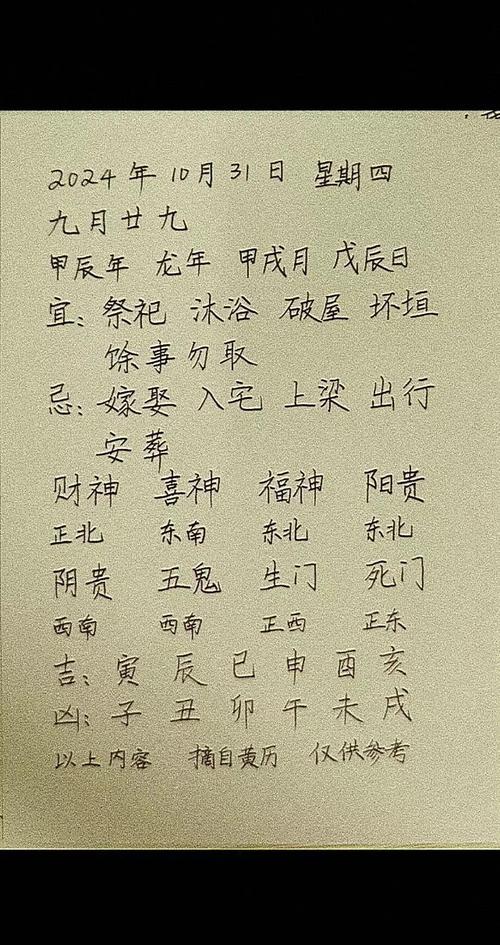 2024年10月31日 星期四
九月廿九
甲辰年 龙年 甲戌月 戊辰日
宜：祭祀 沐浴 破屋 坏垣
馀事勿取
忌：嫁娶 入宅 上梁 出行
安葬
财神 喜神 福神 阳贵
正北 东南 东北 东北
阴贵 五鬼 生门 死门
西南 西南 正西 正东
吉：寅 辰 巳 申 酉 亥
凶：子 丑 卯 午 未 戌
以上内容 摘自黄历 仅供参考